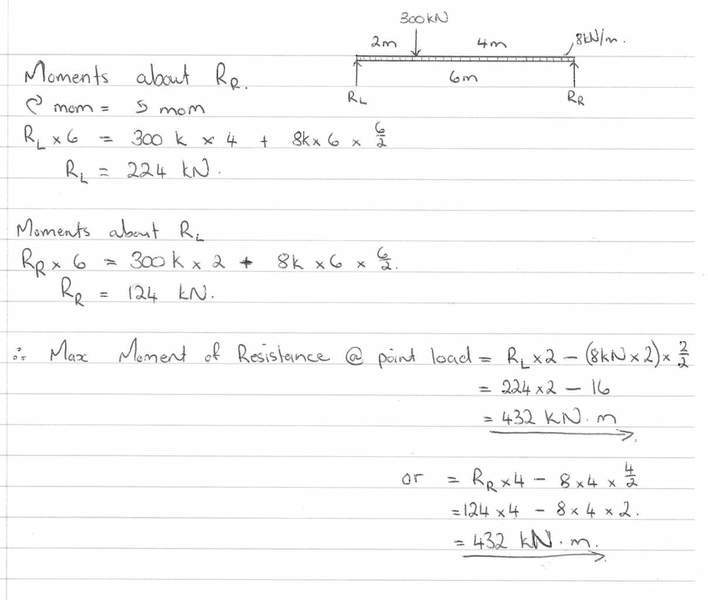 300kN
2m 4m 8kN/m.
6m
RL RR
Moments about RR.
↻ mom = ↺ mom
RL × 6 = 300 k × 4 + 8k × 6 × 6/2
RL = 224 kN.
Moments about RL
RR × 6 = 300 k × 2 + 8k × 6 × 6/2.
RR = 124 kN.
∴ Max Moment of Resistance @ point load = RL × 2 − (8kN × 2) × 2/2
= 224 × 2 − 16
= 432 KN·m
or = RR × 4 − 8 × 4 × 4/2
= 124 × 4 − 8 × 4 × 2.
= 432 kN·m.